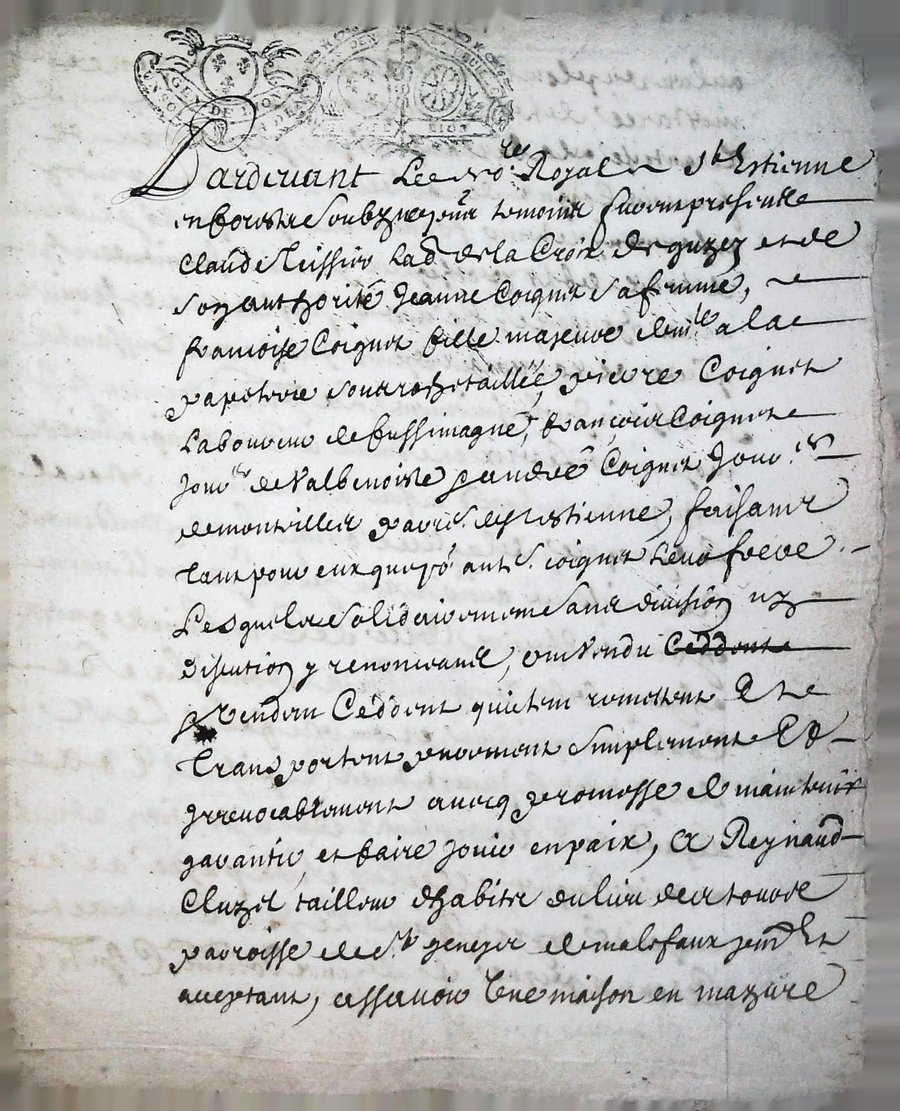 GEN DE LYON
Pardevant Le No.re Royal a St Estienne
en forest soubzne et temoins furent presents
Claude Teissier Lab.r de la Croix de guzey et de
son authorité Jeanne Coignet sa femme,
francoise Coignet fille majeure dem.te a la
papeterie sous rochetaillée, pierre Coignet
Laboureur de fessimagne, françois Coignet
Jour.er de Valbenoiste, andré Coignet Jour.er
de montvillier parr.se de St Estienne, faisant
tant pour eux que po.r ant.e coignet leur frere
Lesquels solidairement sans division ny
discution y renoncant, ont vendu Ceddent
Vendent Ceddent quittent remettent Et
transportent purement simplement Et
Irrevocablement avecq promesse de maintenir
garantir et faire jouir en paix, A Reynaud
Cluzel tailleur d'habits du lieu de
parroisse de St genest de malifaux Et
acceptant, assavoir Une maison en mazure